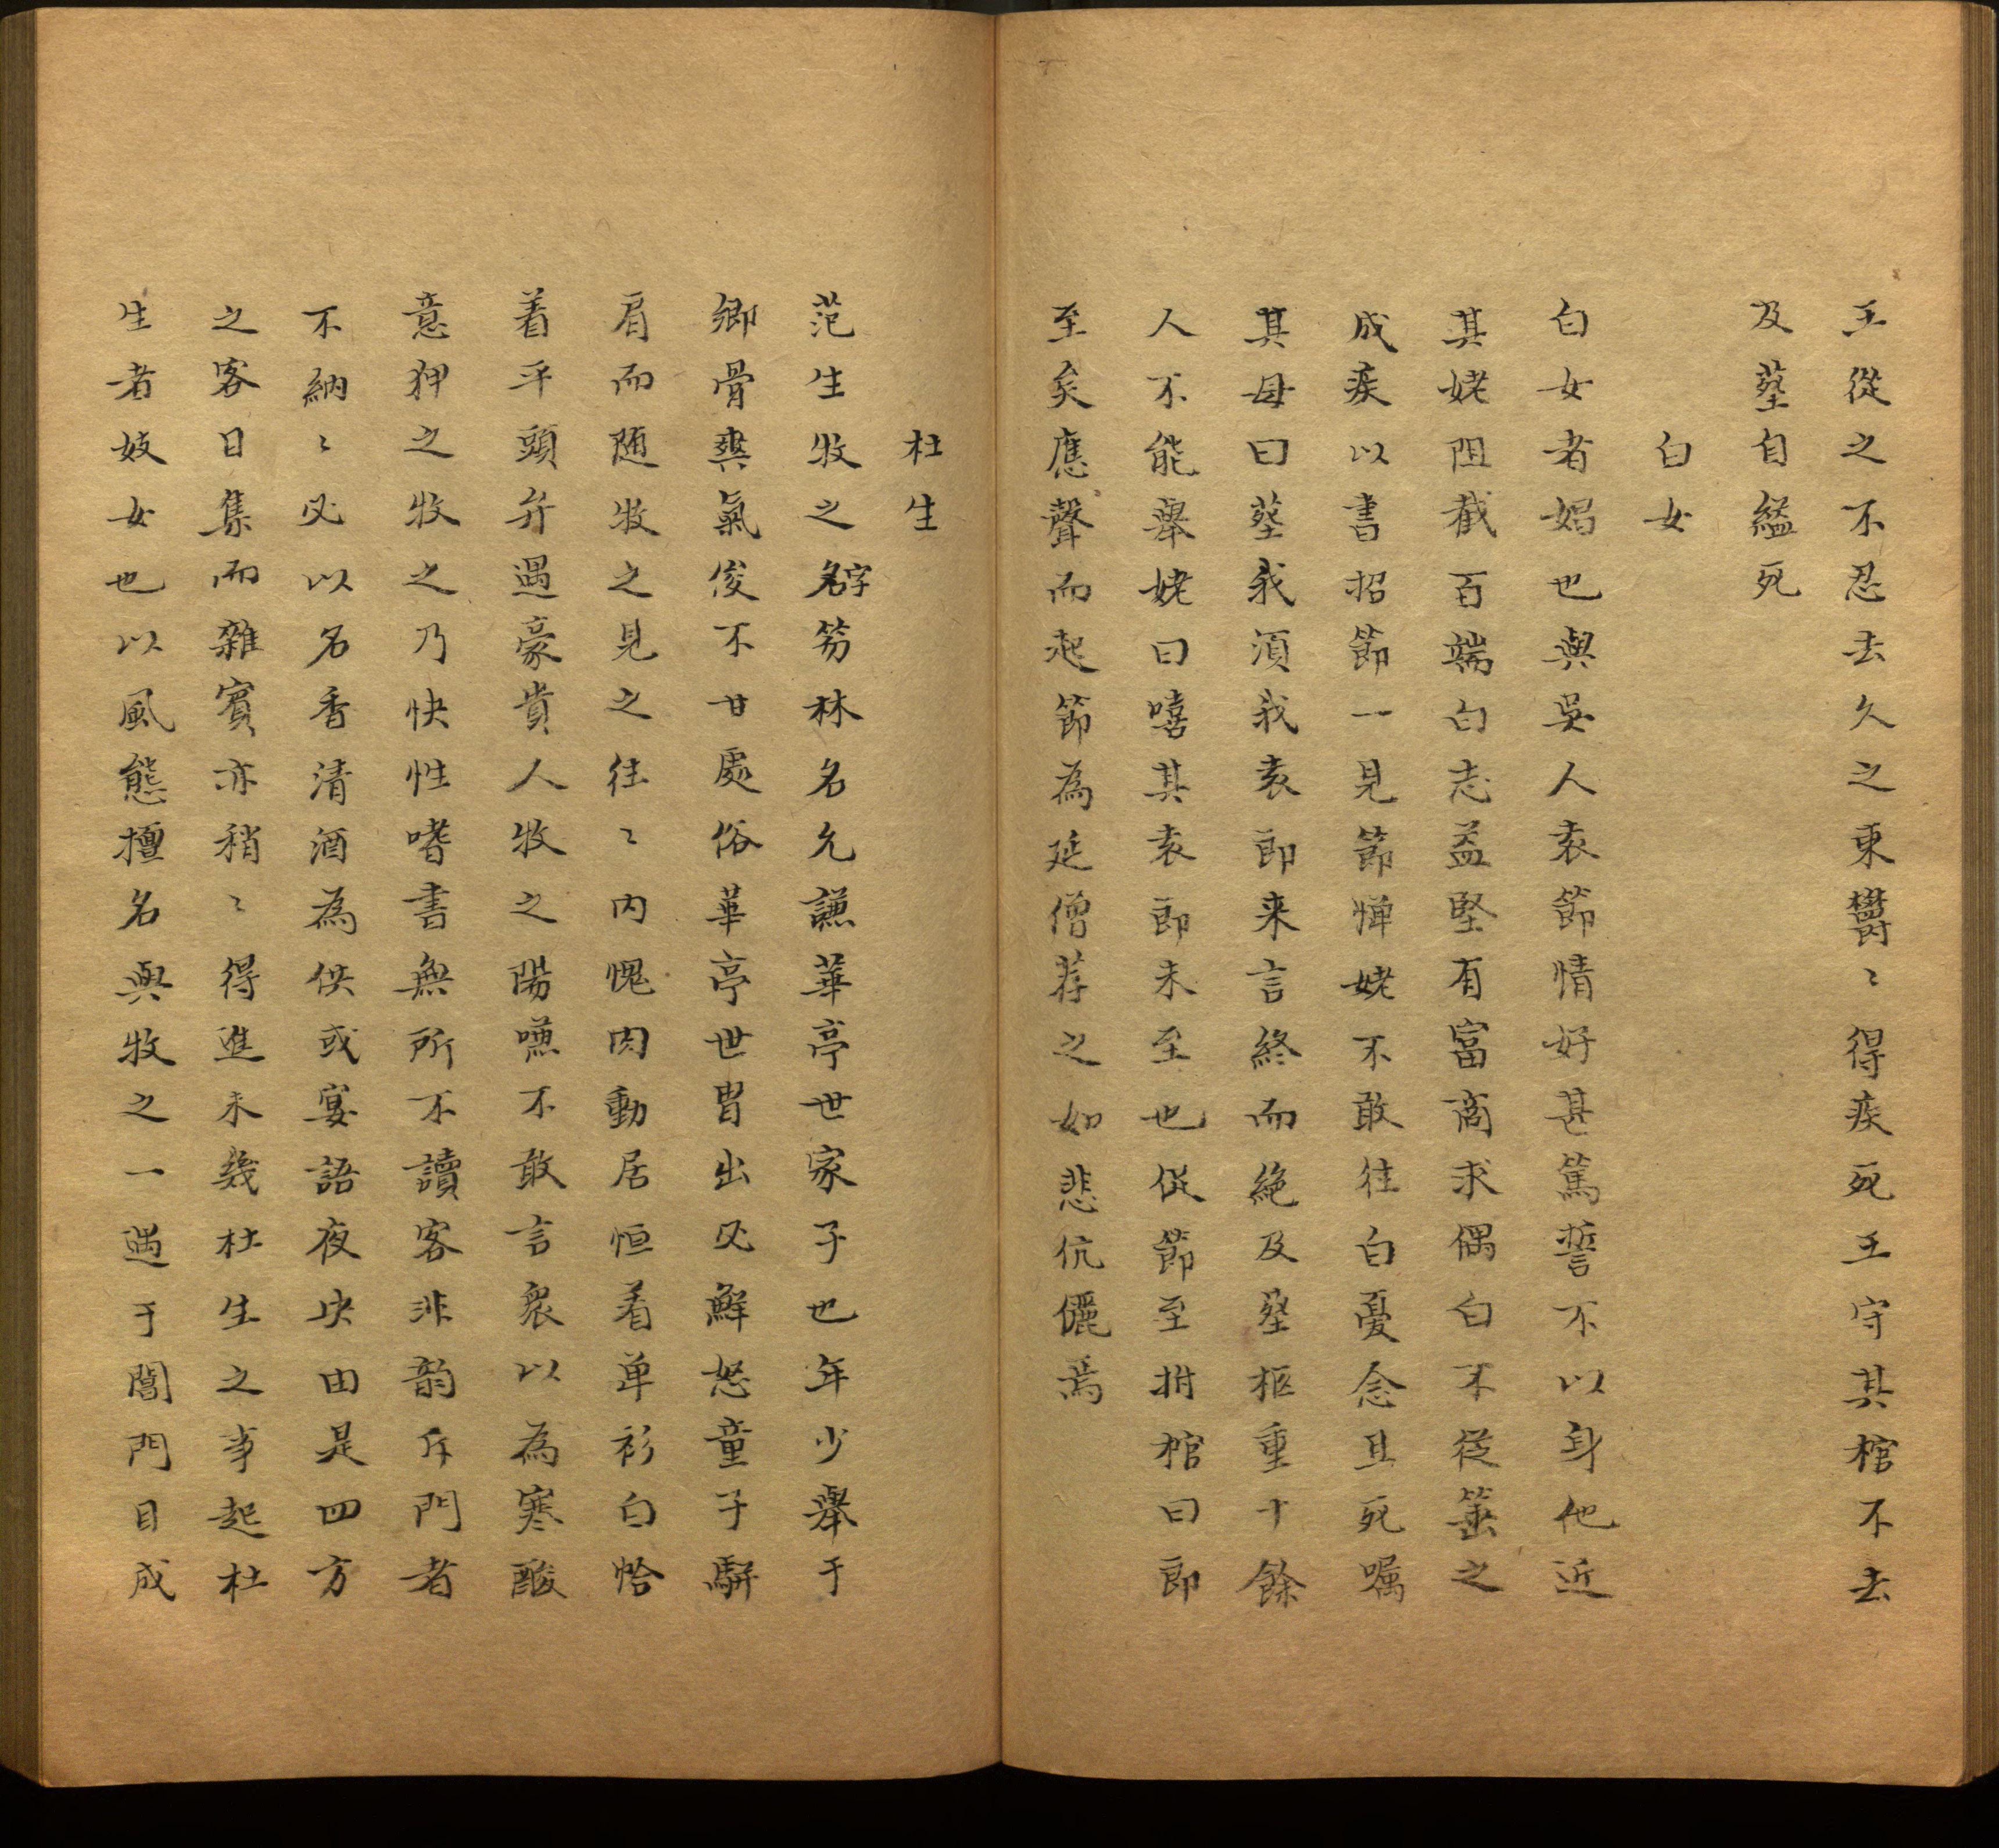 王從之不忍去久之東鬱〻得疾死王守其棺不去
及塟自縊死
白女
白女者娼也與吳人袁節情好甚篤誓不以身他近
其姥阻截百端白志益堅有富商求偶白不從箠之
成疾以書招節一見節憚姥不敢往白憂念且死囑
其母曰塟我須我袁郎来言終而絶及塟柩重十餘
人不能舉姥曰嘻其袁郎未至也促節至拊棺曰郎
至矣應聲而起節為延僧荐之如悲伉儷焉
杜生
范生牧之名字芴林名允謙華亭世家子也年少舉于
鄉骨爽氣俊不甘處俗華亭世胄出必鮮怒童子駢
肩而随牧之見之往〻内愧肉動居恒着单衫白恰
着平頭弁遇豪貴人牧之陽嚥不敢言衆以為寒酸
意狎之牧之乃快性嗜書無所不讀客非韵斥門者
不納〻必以名香清酒為供或宴語夜央由是四方
之客日集而雜賓亦稍〻得進未幾杜生之事起杜
生者妓女也以風態擅名與牧之一遇于閶門目成